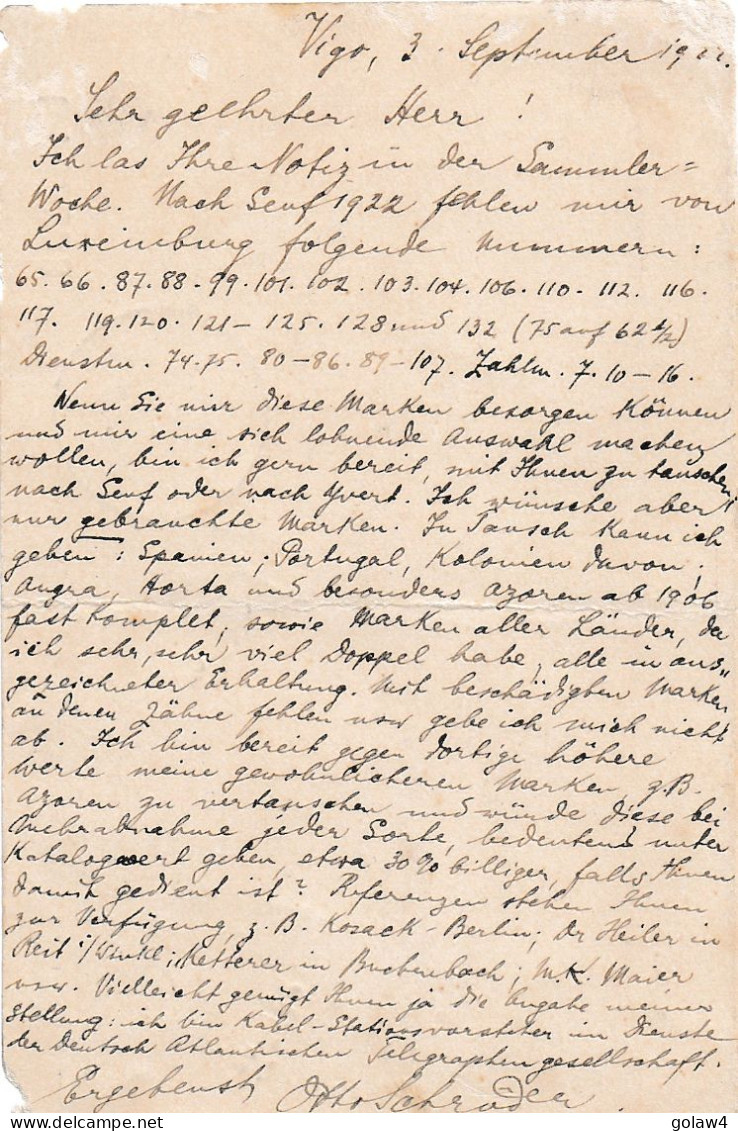 Vigo, 3. September 1922.
Sehr geehrter Herr !
Ich las Ihre Notiz in der Sammler=
Woche. Nach Senf 1922 fehlen mir von
Luxemburg folgende Nummern :
65. 66. 87. 88 - 99. 101. 102. 103. 104. 106. 110. 112. 116.
117. 119. 120. 121 - 125. 128 und 132 (75 auf 62 1/2)
Dienstm. 74. 75. 80 - 86. 89 - 107. Zahlm. 7. 10 - 16.
Wenn Sie mir diese Marken besorgen können
und mir eine sich lohnende Auswahl machen
wollen, bin ich gern bereit, mit Ihnen zu tauschen
nach Senf oder nach Yvert. Ich wünsche aber
nur gebrauchte Marken. In Tausch kann ich
geben : Spanien, Portugal, Kolonien davon,
Angra, Horta und besonders Azoren ab 1906
fast komplet, sowie Marken aller Länder, da
ich sehr, sehr viel Doppel habe, alle in aus„
gezeichneter Erhaltung. Mit beschädigten Marken
an denen Zähne fehlen usw gebe ich mich nicht
ab. Ich bin bereit gegen dortige höhere
Werte meine gewöhnlicheren Marken, z.B.
Azoren zu vertauschen und würde diese bei
Mehrabnahme jeder Sorte, bedeutend unter
Katalogwert geben, etwa 30% billiger, falls Ihnen
damit gedient ist ? Referenzen stehen Ihnen
zur Verfügung, z. B. Kosack-Berlin; Dr Heiler in
Reit i/Winkl; Ketterer in Buchenbach; M.K. Maier
usw. Vielleicht genügt Ihnen ja die Angabe meiner
Stellung : ich bin Kabel-Stationsvorsteher im Dienste
der Deutsch Atlantischen Telegraphengesellschaft.
Ergebenst Otto Schröder.
golaw4